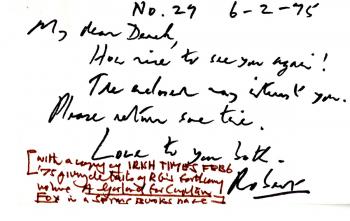 No. 29 6-2-75
My dear Derek,
How nice to see you again!
The enclosed may interest you.
Please return some time.
Love to you both.
Robert
[with a copy of IRISH TIMES FEB 6
'75 giving details of RG's forthcoming
volume A Garland for Captain
Fox in a series Books have